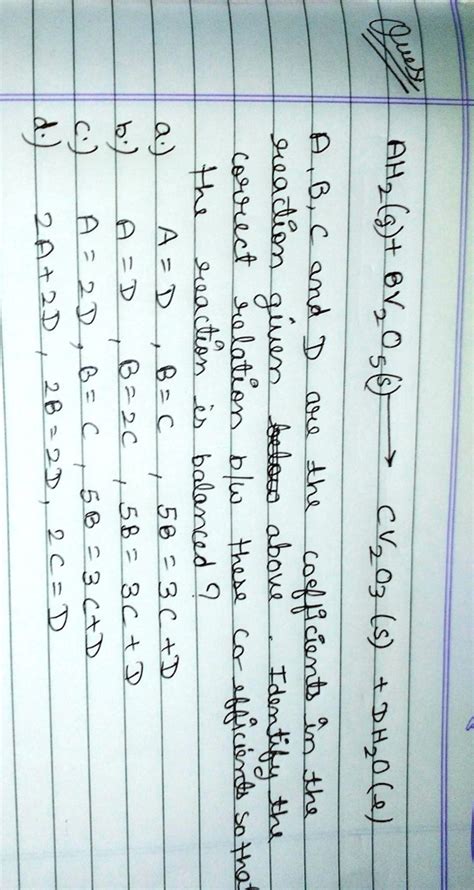 Ques
AH2(g) + BV2O5(s) → CV2O3(s) + DH2O(l)
A, B, C and D are the coefficients in the
reaction given below above. Identify the
correct relation b/w these co-efficients so that
the reaction is balanced?
a.) A = D , B = C , 5B = 3C + D
b.) A = D , B = 2C , 5B = 3C + D
c.) A = 2D , B = C , 5B = 3C + D
d.) 2A + 2D , 2B = 2D, 2C = D